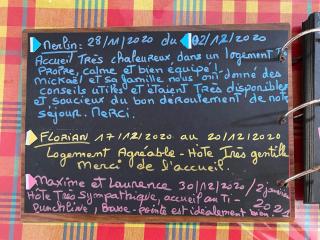 Merlin: 28/11/2020 du 02/12/2020
Accueil Très chaleureux dans un logement T
Propre, calme et bien équipé!
Mickaël et sa famille nous ont donné des
conseils utiles et étaient Très disponibles
et soucieux du bon déroulement de notre
séjour. Merci.
Florian 17/12/2020 au 20/12/2020
Logement Agréable - Hôte Très gentille
Merci de l'accueil.
Maxime et Laurence 30/12/2020/2 janvier
2021
Hôte Très Sympathique, accueil au Ti-
punch Line, Basse-pointe est idéalement bien